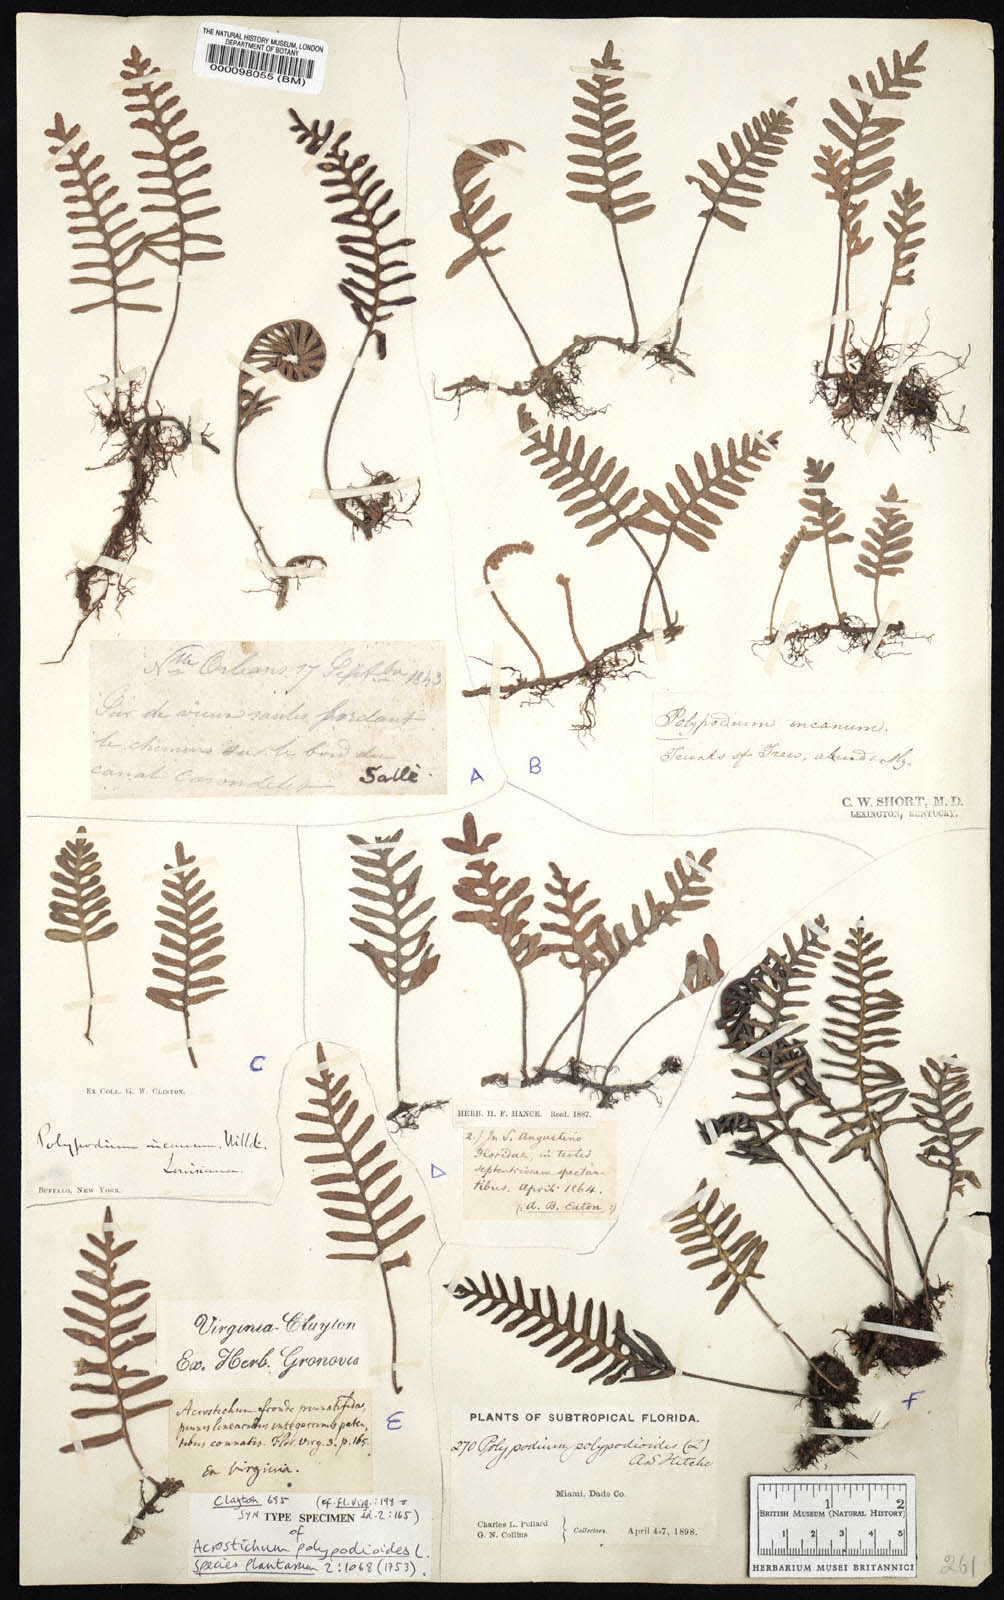 THE NATURAL HISTORY MUSEUM, LONDON
DEPARTMENT OF BOTANY
000098055 (BM)
Nlle Orleans 17 Septbre 1843
Sur de vieux saules bordant
le chemin sur le bord du
canal Carondelet
Sallé
A
B
Polypodium incanum.
Trunks of Trees, abundantly.
C. W. SHORT, M. D.
LEXINGTON, KENTUCKY.
C
EX COLL. G. W. CLINTON.
Polypodium incanum. Willd.
Louisiana.
BUFFALO, NEW YORK.
HERB. H. F. HANCE. Recd. 1887.
2.) In S. Augustino
Floridae, in tectis
septentrionem spectan-
tibus. April 1864.
A. B. Eaton
D
Virginia-Clayton
Ex. Herb. Gronovii
Acrostichum fronde pinnatifida,
pinnis linearibus integerrimis paten-
tibus connatis. Flor. Virg. 3. p. 165.
Ex Virginia.
E
Clayton 695 (cf. Fl. Virg.: 199 =
ed. 2: 165)
SYN TYPE SPECIMEN
of
Acrostichum polypodioides L.
Species Plantarum 2: 1068 (1753).
F
PLANTS OF SUBTROPICAL FLORIDA.
270 Polypodium polypodioides (L)
A S Hitchc
Miami, Dade Co.
Charles L. Pollard
G. N. Collins
Collectors.
April 4-7, 1898.
1 2
BRITISH MUSEUM (NATURAL HISTORY)
1 2 3 4 5
HERBARIUM MUSEI BRITANNICI
261